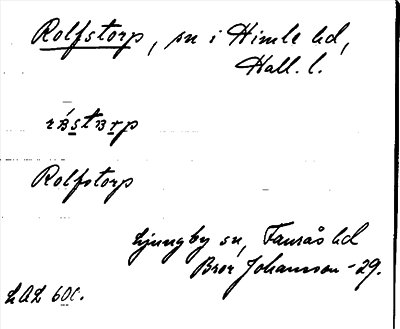 Rolfstorp, sn i Himle hd,
Hall. l.
Rolfstorp
Ljungby sn, Faurås hd
Bror Johansson -29.
LAL 600.